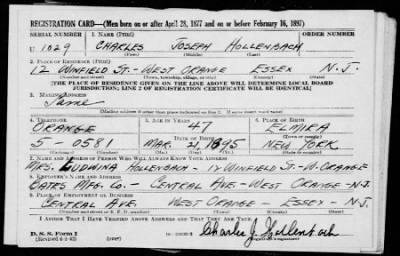 REGISTRATION CARD—(Men born on or after April 28, 1877 and on or before February 16, 1897)
SERIAL NUMBER 1. NAME (Print) ORDER NUMBER
U 1029 CHARLES JOSEPH HOLLENBACH
(First) (Middle) (Last)
2. PLACE OF RESIDENCE (Print)
12 WINFIELD ST. - WEST ORANGE ESSEX N.J.
(Number and street) (Town, township, village, or city) (County) (State)
[THE PLACE OF RESIDENCE GIVEN ON THE LINE ABOVE WILL DETERMINE LOCAL BOARD
JURISDICTION; LINE 2 OF REGISTRATION CERTIFICATE WILL BE IDENTICAL]
3. MAILING ADDRESS
Same
[Mailing address if other than place indicated on line 2. If same insert word same]
4. TELEPHONE 5. AGE IN YEARS 6. PLACE OF BIRTH
ORANGE 47 ELMIRA
DATE OF BIRTH (Town or county)
5-0581 MAR. 21, 1895 NEW YORK
(Exchange) (Number) (Mo.) (Day) (Yr.) (State or country)
7. NAME AND ADDRESS OF PERSON WHO WILL ALWAYS KNOW YOUR ADDRESS
MRS. LUDWINA HOLLENBACH - 12 WINFIELD ST. - W. ORANGE
8. EMPLOYER'S NAME AND ADDRESS
BATES MFG. CO. - CENTRAL AVE. - WEST ORANGE - N.J.
9. PLACE OF EMPLOYMENT OR BUSINESS
CENTRAL AVE. WEST ORANGE - ESSEX - N.J.
(Number and street or R. F. D. number) (Town) (County) (State)
I AFFIRM THAT I HAVE VERIFIED ABOVE ANSWERS AND THAT THEY ARE TRUE.
D. S. S. Form 1
(Revised 4-1-42) Charles J. Hollenbach